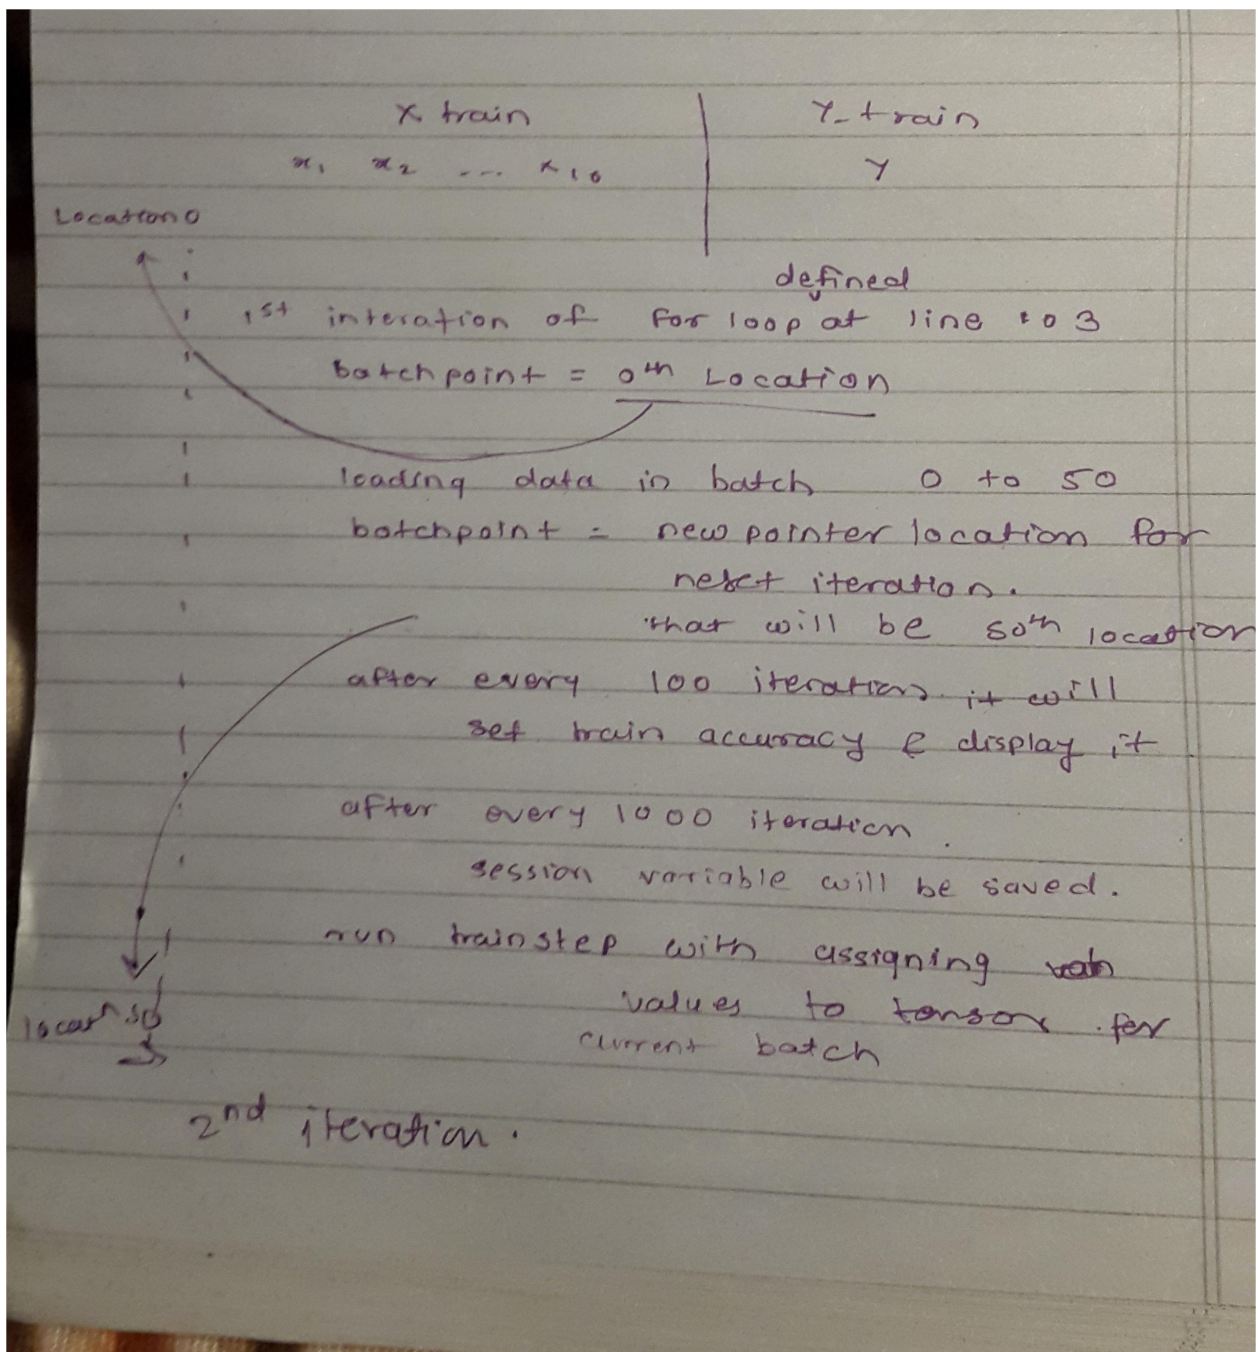 X train Y-train
x1 x2 ... x10 Y
Location 0
defined
1st interation of for loop at line 103
batchpoint = 0th Location
loading data in batch 0 to 50
batchpoint = new pointer location for
next iteration.
that will be 50th location
after every 100 iteration it will
set train accuracy & display it
after every 1000 iteration.
session variable will be saved.
run trainstep with assigning
values to tensor for
current batch
locatn 50
2nd iteration.